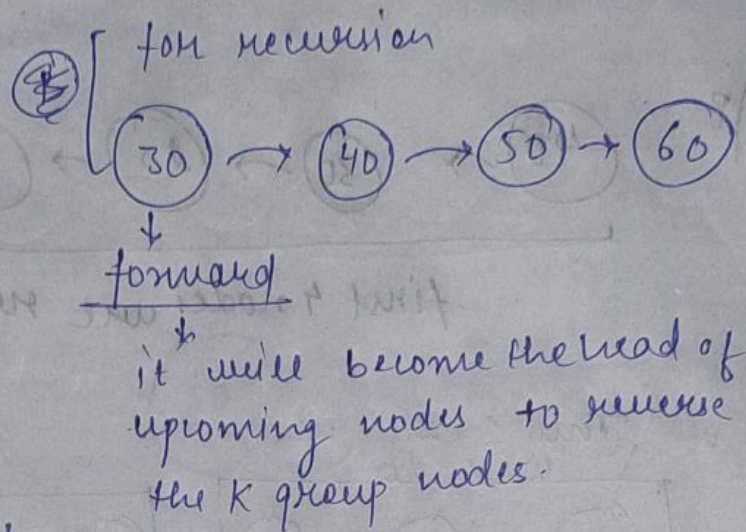 for recursion
30 → 40 → 50 → 60
↓
forward
↓
it will become the head of
upcoming nodes to reverse
the K group nodes.